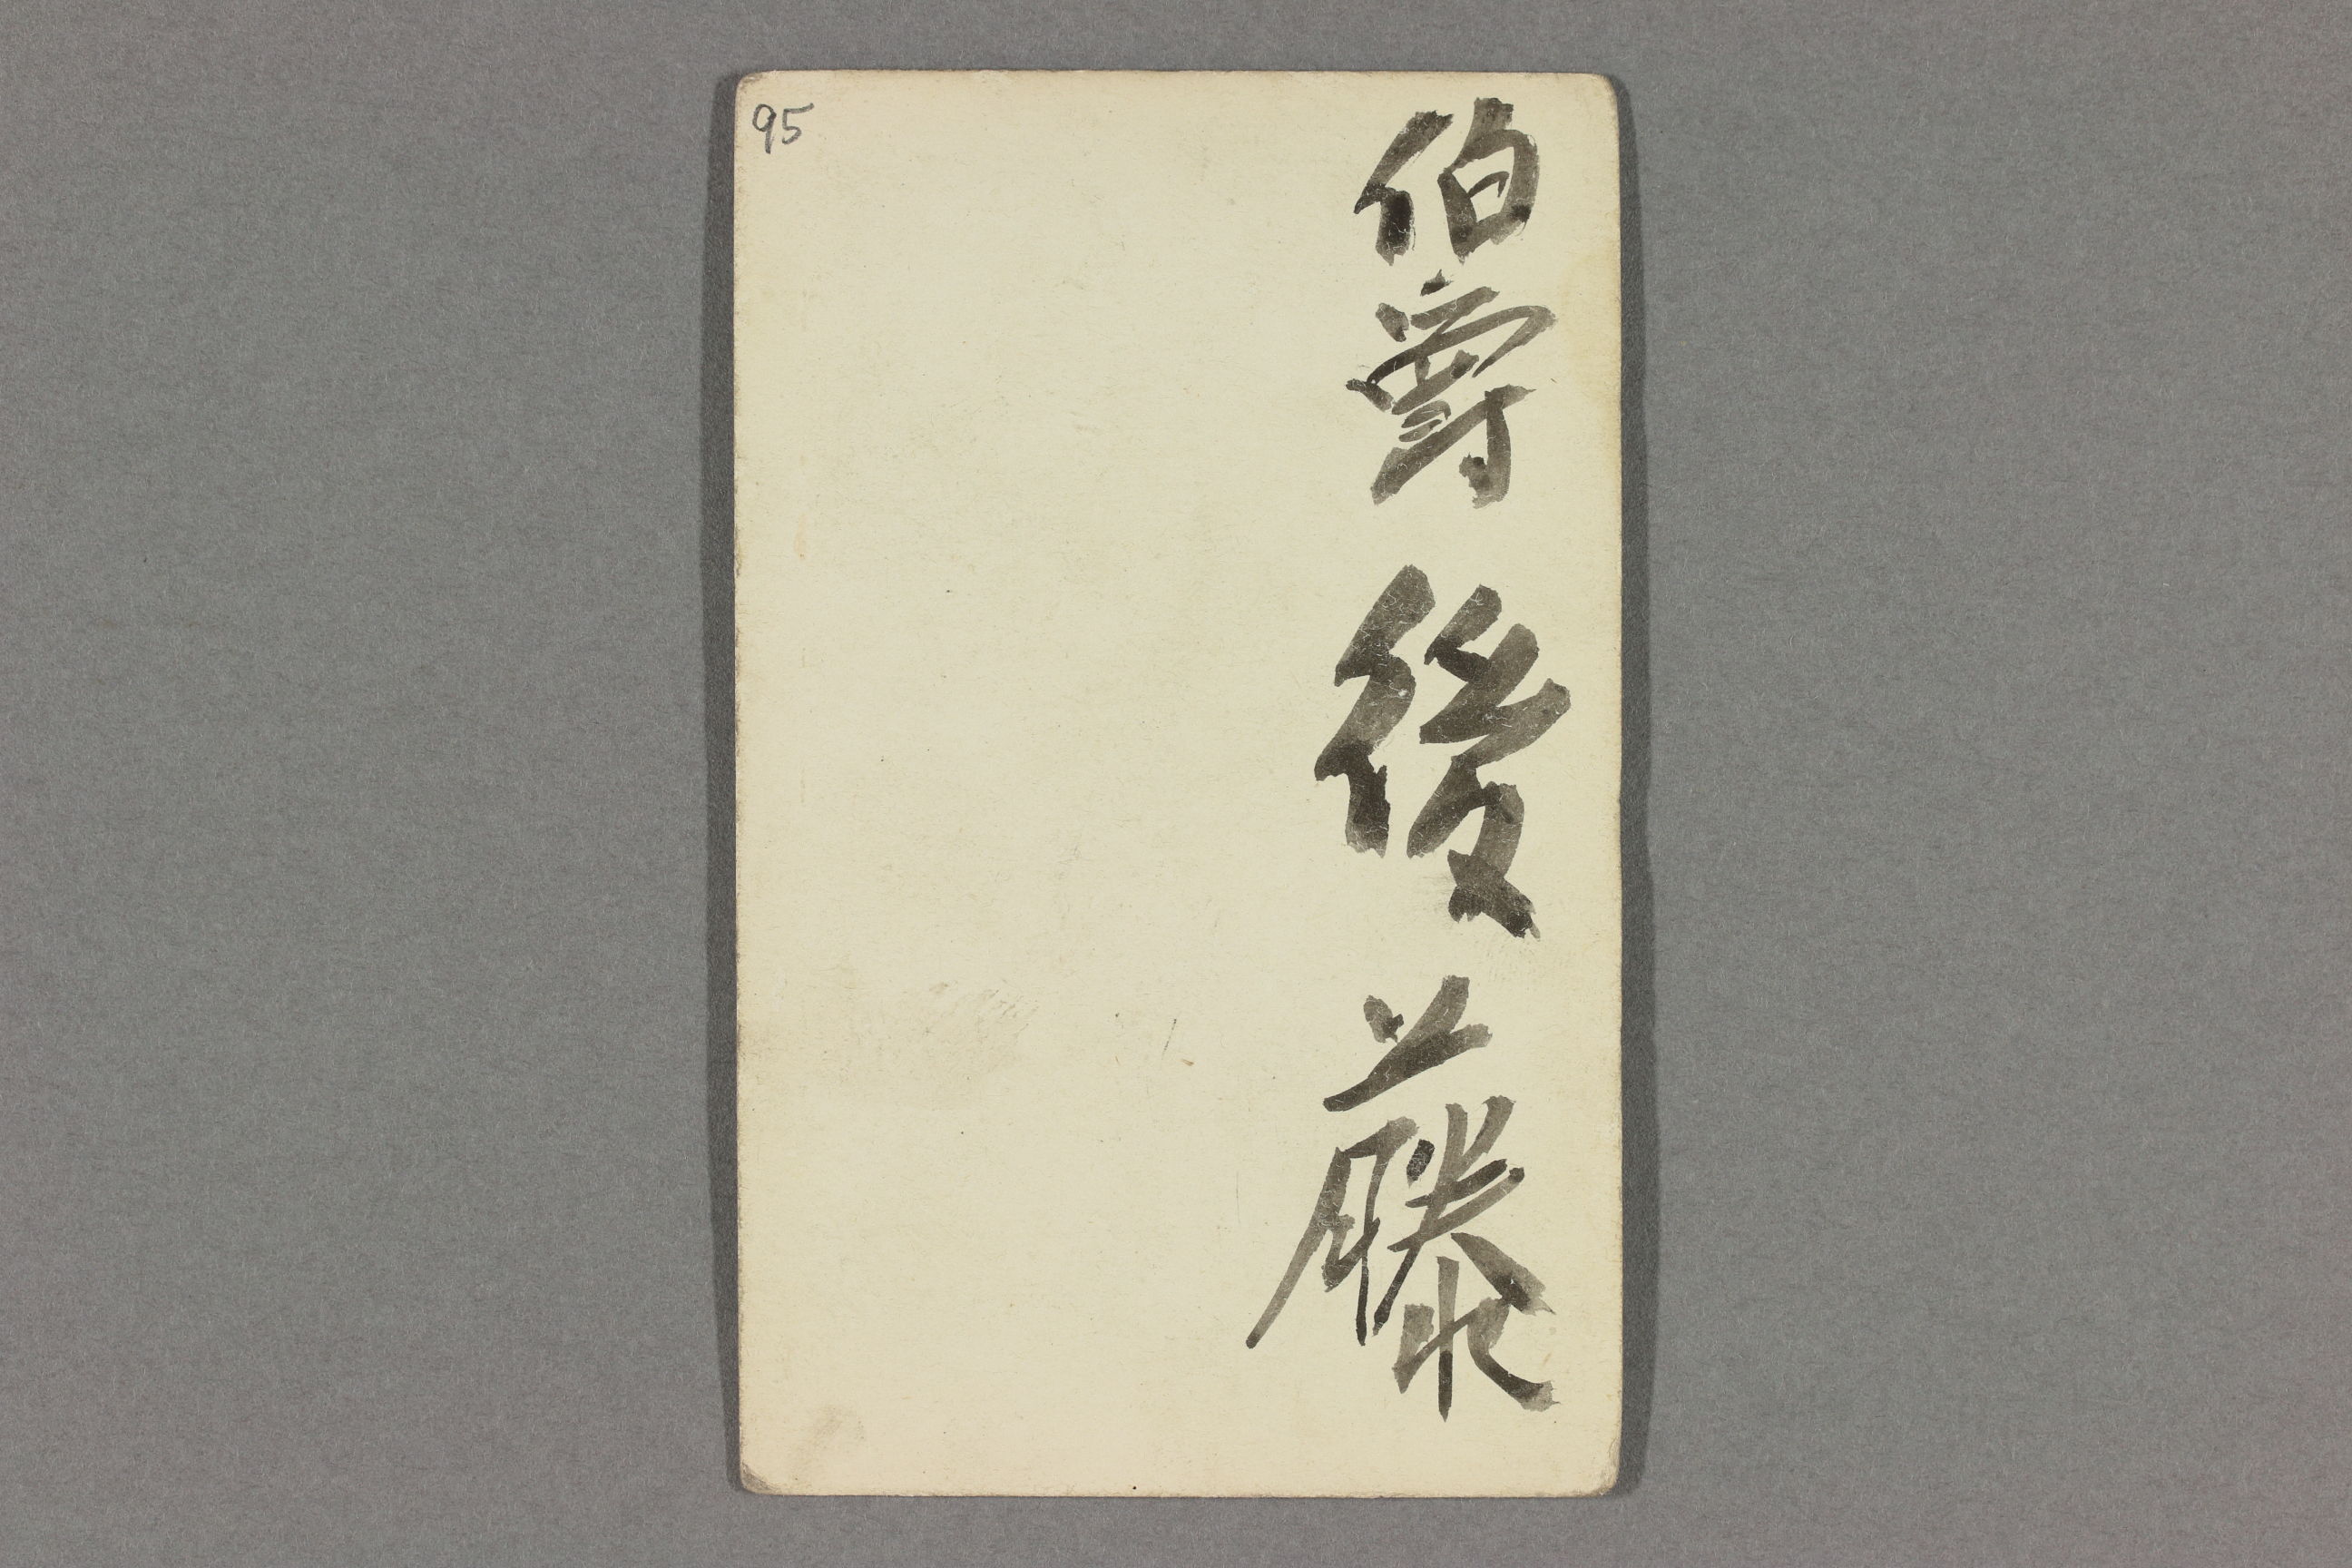 95
伯爵 後藤